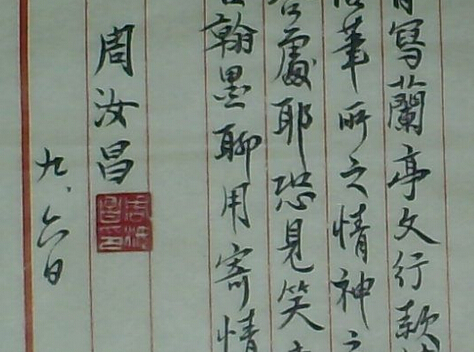 寫蘭亭文行款
筆所之情神
處耶恐見笑
翰墨聊用寄情
周汝昌
九、六日